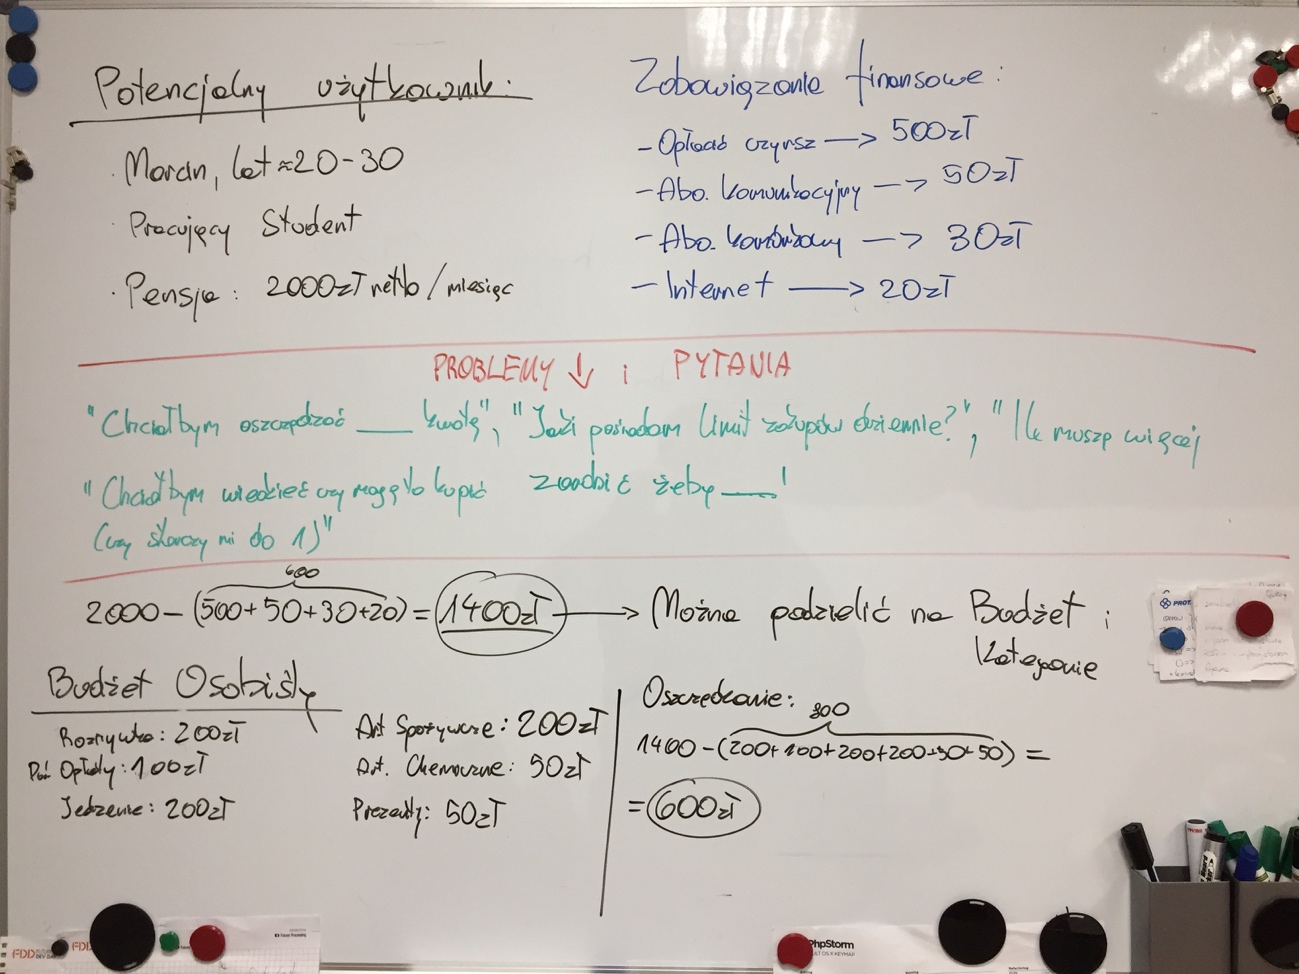 Potencjalny użytkownik:
· Marcin, lat ≈20-30
· Pracujący Student
· Pensja: 2000zł netto/miesiąc
Zobowiązania finansowe:
- Opłacać czynsz → 500zł
- Abo. komunikacyjny → 50zł
- Abo. → 30zł
- Internet → 20zł
PROBLEMY ↓ i PYTANIA
"Chciałbym oszczędzać ___ kwotę", "Jaki posiadam limit zakupów dziennie?", "Ile muszę więcej
zarobić żeby ___"
"Chciałbym wiedzieć czy mogę to kupić
(czy starczy mi do 1)"
600
2000-(500+50+30+20) = 1400zł → Można podzielić na Budżet i
Kategorie
Budżet Osobisty
Rozrywka: 200zł
Opłaty: 100zł
Jedzenie: 200zł
Art Spożywcze: 200zł
Art. Chemiczne: 50zł
Prezenty: 50zł
Oszczędzanie:
800
1400-(200+100+200+200+50+50) =
= 600zł
FDD
FDD
PROT
PhpStorm